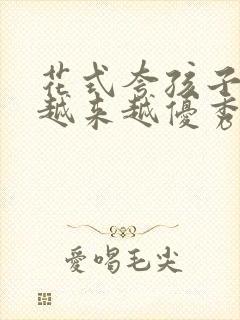 花式夸孩子
越来越優秀
愛唱毛尖